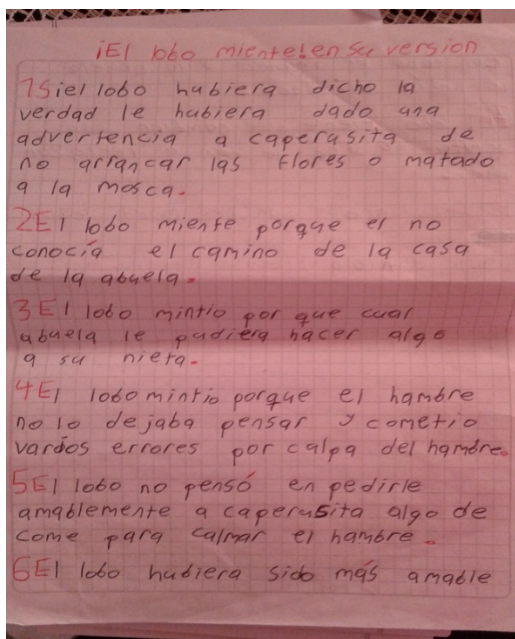 ¡El lobo miente!en su version
1Si el lobo hubiera dicho la
verdad le hubiera dado una
advertencia a caperusita de
no arrancar las flores o matado
a la mosca.
2El lobo miente porque el no
conocía el camino de la casa
de la abuela.
3El lobo mintio por que cual
abuela le pudiera hacer algo
a su nieta.
4El lobo mintio porque el hambre
no lo dejaba pensar y cometio
varios errores por culpa del hambre.
5El lobo no pensó en pedirle
amablemente a caperusita algo de
come para calmar el hambre.
6El lobo hubiera sido más amable